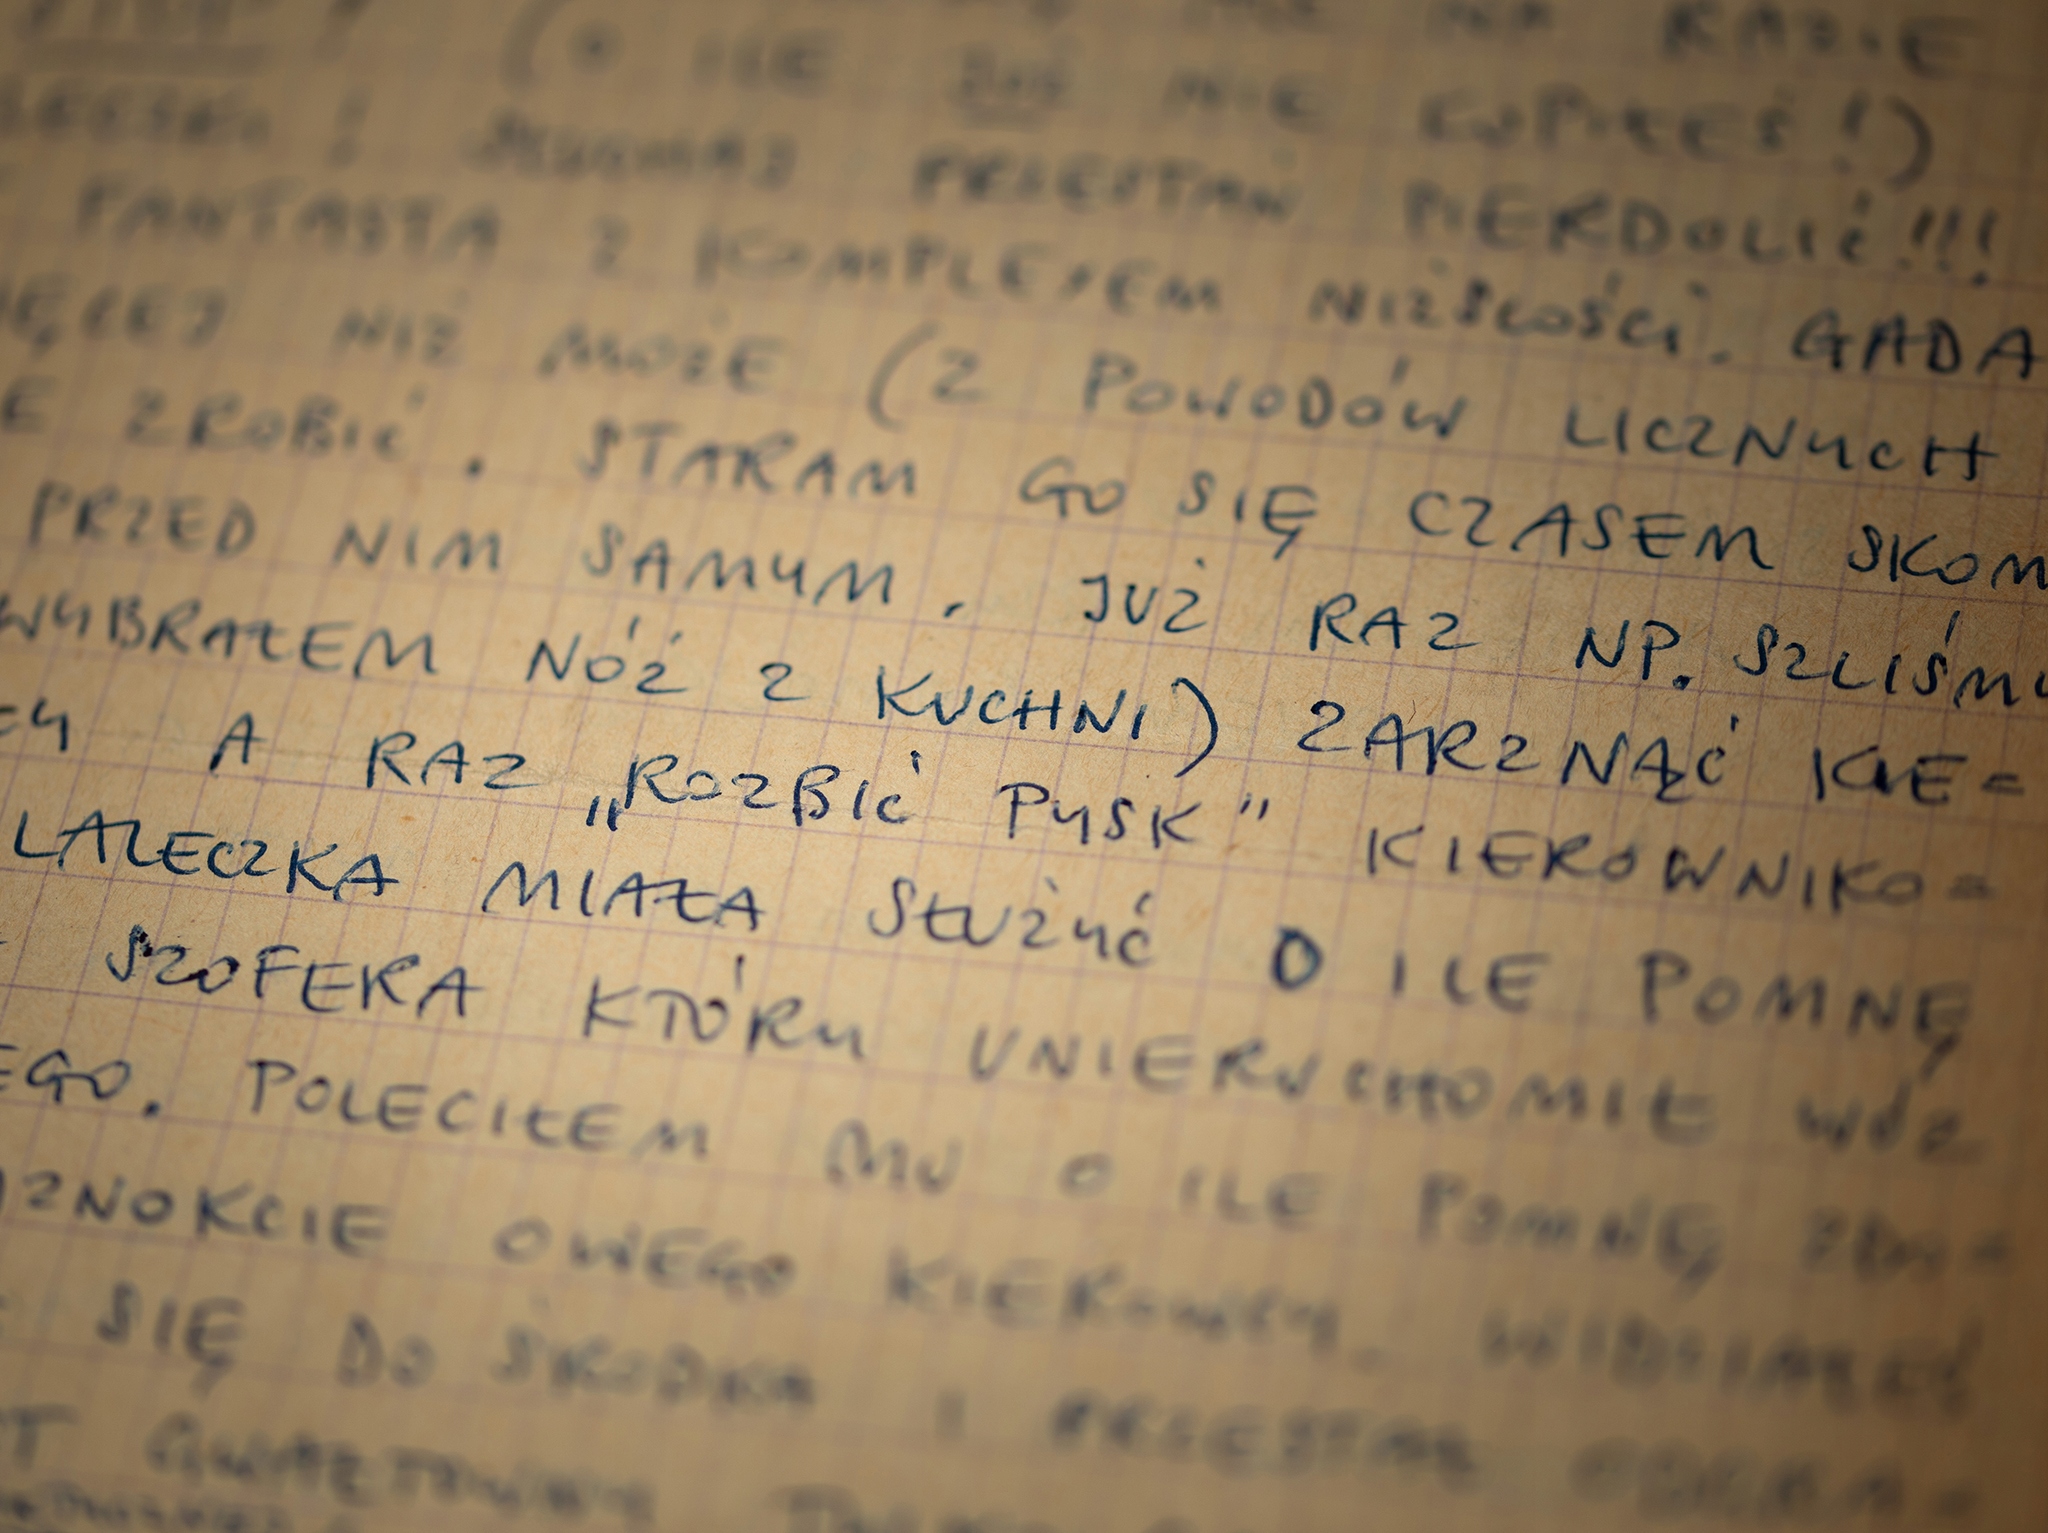 NA RAZIE
(O ILE JUŻ NIE KUPIŁEŚ!)
! SŁUCHAJ PRZESTAŃ PIERDOLIĆ!!!
FANTASTA Z KOMPLEXEM NIŻSZOŚCI. GADA
NIŻ MOŻE (Z POWODÓW LICZNYCH
ZROBIĆ. STARAM GO SIĘ CZASEM SKOM
PRZED NIM SAMYM. JUŻ RAZ NP. SZLIŚMY
WYBRAŁEM NÓŻ Z KUCHNI) ZARZNĄĆ KIE=
CY A RAZ „ROZBIĆ PYSK" KIEROWNIKO=
LALECZKA MIAŁA SŁUŻYĆ O ILE POMNĘ
SZOFERA KTÓRY UNIERUCHOMIŁ WÓZ
EGO. POLECIŁEM MU O ILE POMNĘ
AZNOKCIE OWEGO KIEROWCY. WIDZIAŁEŚ
SIĘ DO ŚRODKA I PRZESTAŁ
T GWAŁTOWNY